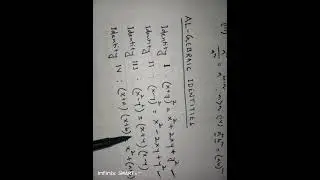 AL-GEBRAIC IDENTITIES
Identity I : (x+y)² = x² + 2xy + y²
Identity II : (x-y)² = x² - 2xy + y²
Identity III : (x²-y²) = (x+y) (x-y)
Identity IV : (x+a) (x+b) = x² + (a
Infinix SMART